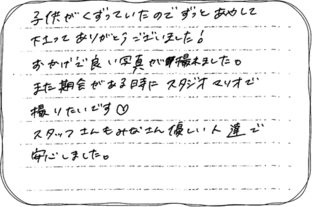 子供がぐずっていたのでずっとあやして
下さってありがとうございました！
おかげで良い写真が撮れました。
また機会がある時にスタジオマリオで
撮りたいです♡
スタッフさんもみなさん優しい人達で
安心しました。